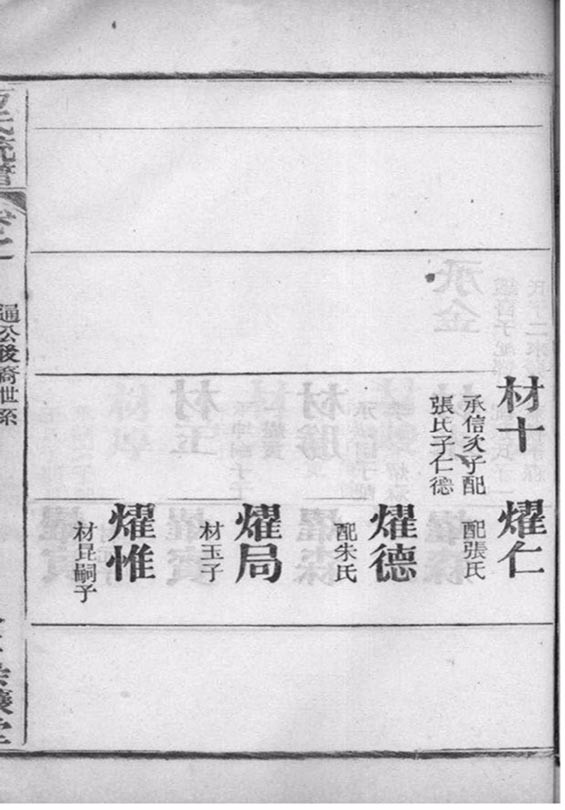 材十
承信次子配
張氏子仁德
燿仁
配張氏
燿德
配朱氏
燿局
材玉子
燿惟
材昆嗣子
通公後裔世系